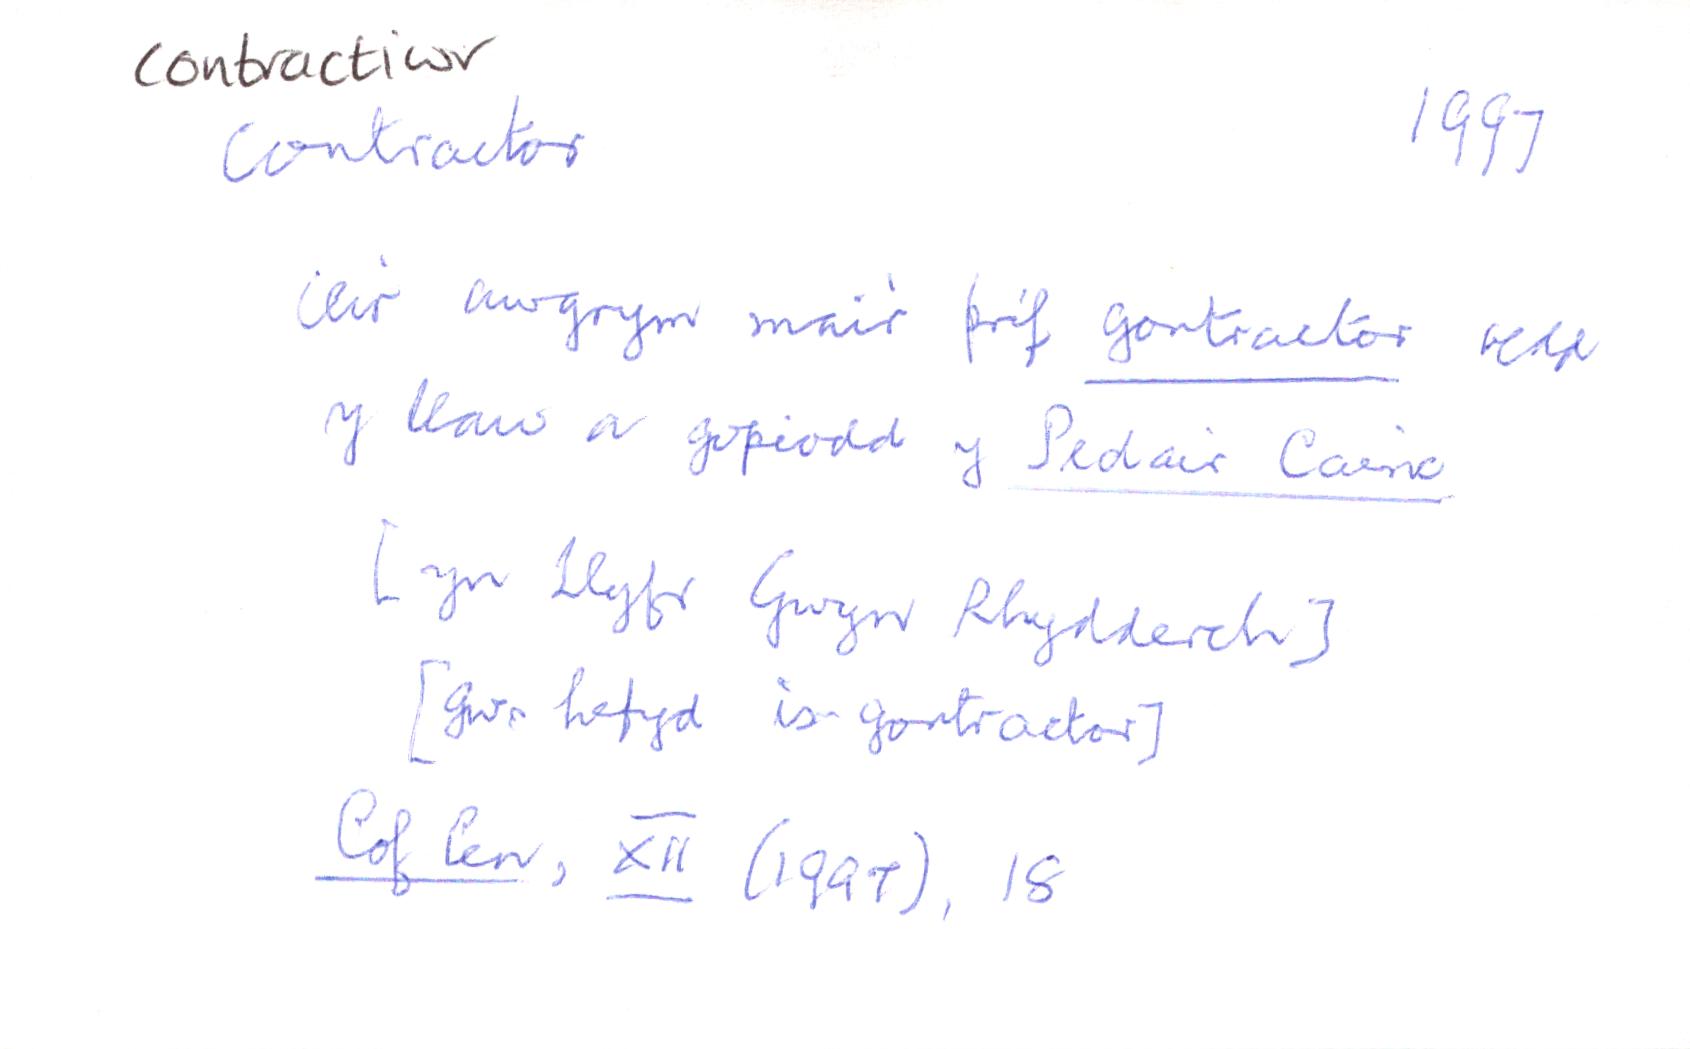 contractiwr
Contractor 1997
ceir awgrym mai'r prif gontractor oedd
y llaw a gopiodd y Pedair Cainc
[yn Llyfr Gwyn Rhydderch]
[gw. hefyd is-gontractor]
Cof Cen, XII (1997), 18